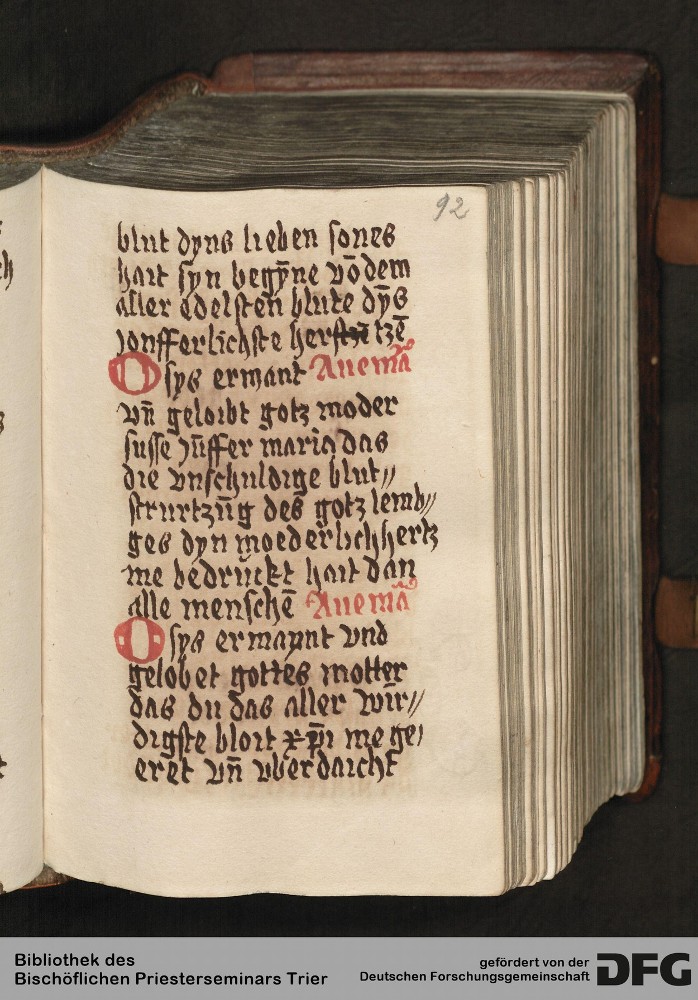 92
blut dyns lieben sones
hait syn begȳne vō dem
aller edelsten blute dȳs
jonfferlichste herstzē tzē
O sys ermant Aue mā
vn̄ geloibt gotz moder
susse jūffer maria das
die vnschuldige blut//
strurtzūg des gotz lemb//
ges dyn moederlich hertz
me bedruckt hait dan
alle menschē Aue mā
O sys ermannt vnd
gelobet gottes motter
das du das aller wir//
digste bloit xp̄i me ge/
eret vn̄ vberdaicht
Bibliothek des
Bischöflichen Priesterseminars Trier
gefördert von der
Deutschen Forschungsgemeinschaft
DFG